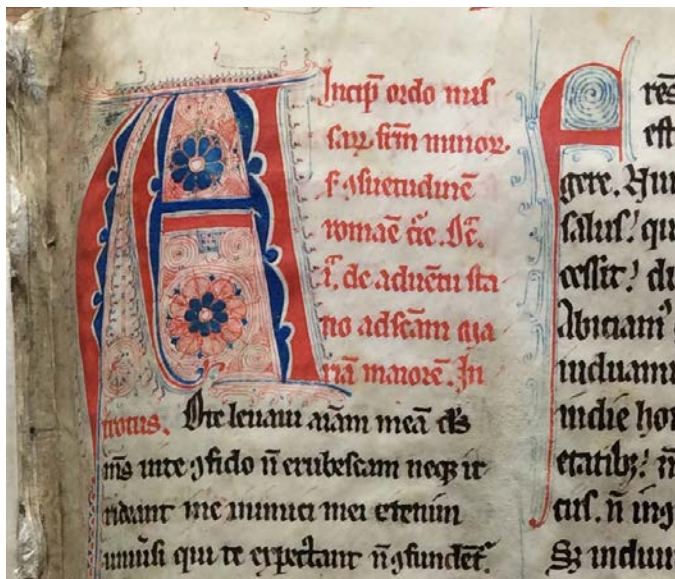 A
Incip̄ ordo mis
saꝝ fr̄m minoꝝ.
ẜ ꝯsuetudinē
romāe cūie. Dn̄.
i͛. de aduentu sta
tio ad sc̄am ma
riā maiorē. In
troitus. Dte leuaui aīam meā ds̄
ms̄ in te ꝯfido n̄ erubescam neqꝫ ir
rideant me inimici mei etenim
uniūsi qui te expectant n̄ ꝯfundent᷑
F res
est
gere. Hun
salus! qu
cessit! du
Abiciam᷒
induamu
in die hon
etatibꝫ! n̄
cus. n̄ in ꝯ
Sꝫ induim